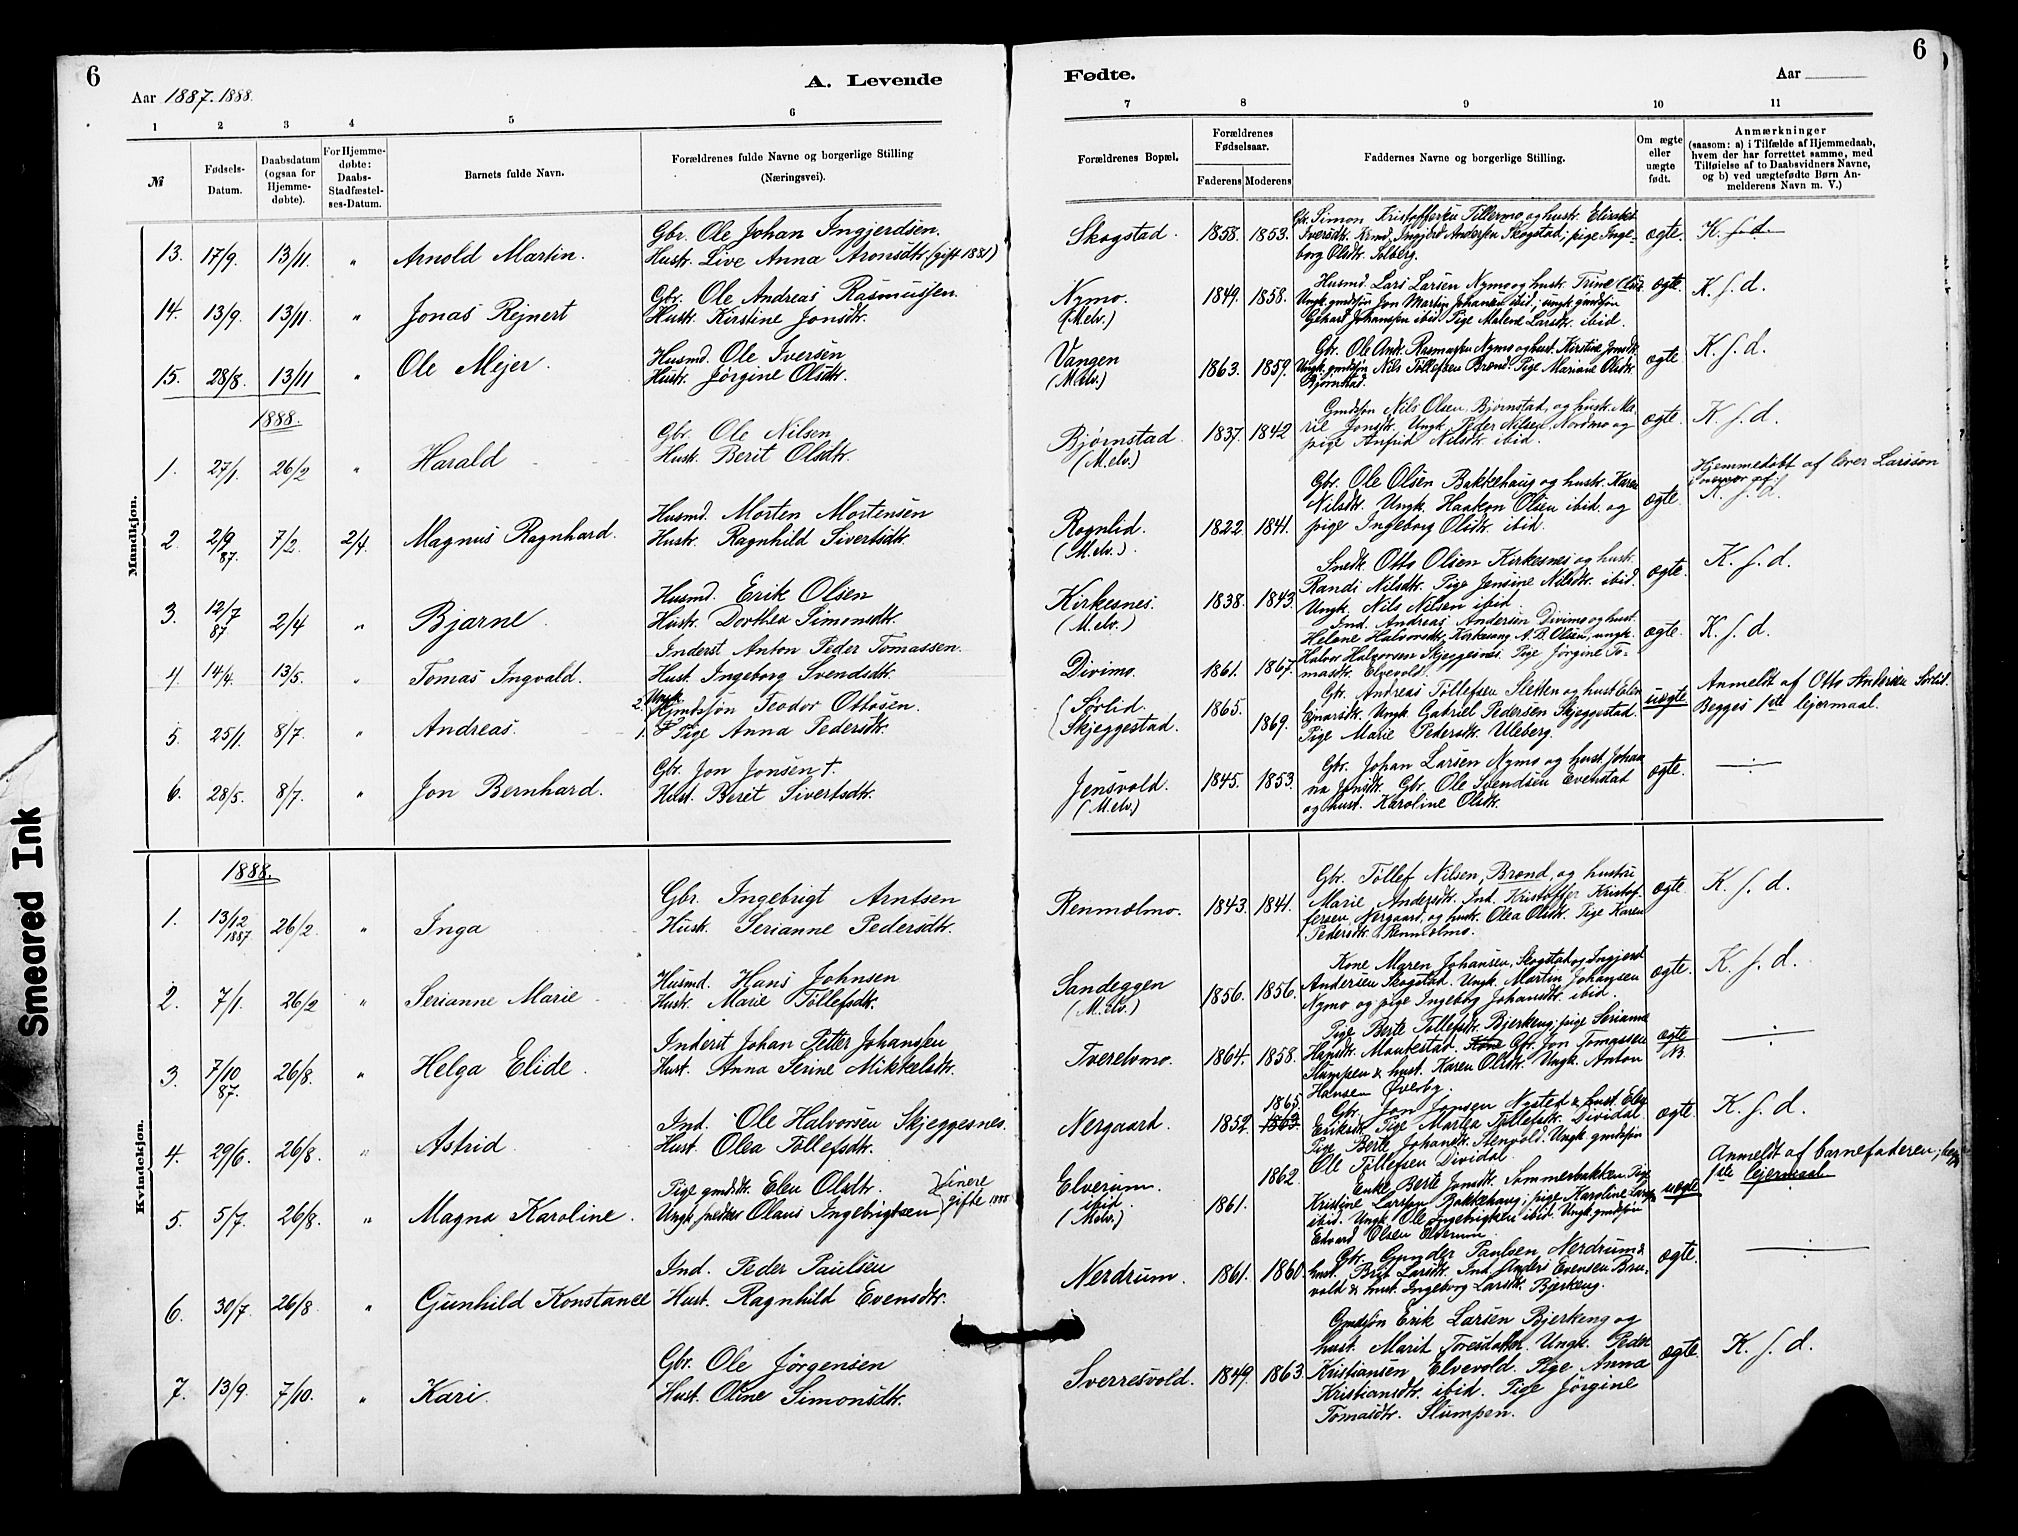 6
A. Levende
Aar 1887. 1888.
1 2 3 4 5 6
№
Fødsels-Datum.
Daabsdatum (ogsaa for Hjemme-døbte).
For Hjemme-døbte: Daabs-Stadfæstel-ses-Datum.
Barnets fulde Navn.
Forældrenes fulde Navne og borgerlige Stilling
(Næringsvei).
Mandkjøn.
13. 17/9. 13/11. " Arnold Martin.
Gbr. Ole Johan Ingjerdsen.
Hustr. Live Anna Aronsdtr. (gift 1881)
14. 13/9. 13/11. " Jonas Rejnert
Gbr. Ole Andreas Rasmussen.
Hustr. Kirstine Jonsdtr.
15. 28/8. 13/11 " Ole Mejer.
Husmd. Ole Iversen
Hustr. Jørgine Olsdtr.
1888.
1. 27/1. 26/2 " Harald
Gbr. Ole Nilsen
Hustr. Berit Olsdtr.
2. 2/9 87. 7/2. 2/4. Magnus Ragnhard.
Husmd. Morten Mortensen
Hustr. Ragnhild Sivertsdtr.
3. 12/7 87 2/4 " Bjarne.
Husmd. Erik Olsen
Hustr. Dorthea Simonsdtr.
4. 14/4. 13/5. " Tomas Ingvald.
Inderst Anton Peder Tomassen.
Hust. Ingeborg Svendsdtr.
5. 25/1. 8/7. " Andreas.
2. Ungk. Gmdssøn Teodor Ottosen.
1. Pige Anna Pedersdtr.
6. 28/5. 8/7. " Jon Bernhard.
Gbr. Jon Jonsen †.
Hust. Beret Sivertsdtr.
Kvindekjøn.
1888.
1. 13/12 1887 26/2. " Inga
Gbr. Ingebrigt Arntsen
Hustr. Serianne Pedersdtr.
2. 7/1. 26/2 " Serianne Marie
Husmd. Hans Johnsen
Hustr. Marie Tollefsdtr.
3. 7/10 87. 26/8. " Helga Elide.
Inderst Johan Petter Johanssen
Hust. Anna Serine Mikkelsdtr.
4. 29/6. 26/8. " Astrid
Ind. Ole Halvorsen Skjeggesnes.
Hust. Olea Tollefsdtr.
5. 5/7. 26/8. " Magna Karoline.
Pige gmdsdtr. Elen Olsdtr.
Ungk. snedker Olaus Ingebrigtsen
} senere gifte 1888
6. 30/7. 26/8. " Gunhild Konstance
Ind. Peder Paulsen
Hust. Ragnhild Evensdtr.
7. 13/9. 7/10. " Kari.
Gbr. Ole Jørgensen
Hust. Oline Simonsdtr.
Smeared Ink
6
Fødte.
Aar
7 8 9 10 11
Forældrenes Bopæl.
Forældrenes Fødselsaar.
Faderens Moderens
Faddernes Navne og borgerlige Stilling.
Om ægte eller uægte født.
Anmærkninger
(saasom: a) i Tilfælde af Hjemmedaab,
hvem der har forrettet samme, med
Tilføielse af to Daabsvidners Navne,
og b) ved uægtefødte Børn An-
melderens Navn m. V.)
Skogstad. 1858. 1853.
Gbr. Simon Kristoffersen Tillermo og hustr. Elisabet
Iversdtr. Krmd. Ingjerd Andersen Skogstad; pige Inge-
borg Olsdtr. Solberg.
ægte. K. f. d.
Nymo. (M.elv.) 1849. 1858.
Husmd. Lars Larsen Nymo og hustr. Trine
Ungk. gmdssøn Jon Martin Johansen ibid; ungk. gmdssøn
Gehard Johanssen ibid. Pige Malene Larsdtr. ibid.
ægte. K. f. d.
Vangen (M.elv.) 1863. 1859.
Gbr. Ole Andr. Rasmussen Nymo og hust. Kirstine Jonsdtr.
Ungk. gmdssøn Nils Tollefsen Brønd. Pige Mariane Olsdtr.
Bjørnstad.
ægte K. f. d.
Bjørnstad. (M.elv.) 1837. 1842
Gmdssøn Nils Olsen, Bjørnstad, og hustr. Ma-
ril Jonsdtr. Ungk. Peder Nilsen Nordmo og
pige Anfrid Nilsdtr. ibid.
ægte. K. f. d.
Rognlid. (M.elv.). 1822. 1841.
Gbr. Ole Olsen Bakkehaug og hustr. Karen
Nilsdtr. Ungk. Haakon Olsen ibid. og
pige Ingeborg Olsdtr. ibid.
ægte.
Hjemmedøbt af lærer Larsson
K. f. d.
Kirkesnes. (M.elv.) 1838. 1843.
Snedk. Otto Olsen Kirkesnes og hustr.
Randi Nilsdtr. Pige Jensine Nilsdtr. ibid.
Ungk. Nils Nilsen ibid.
ægte. K. f. d.
Divimo. 1861. 1867.
Ind. Andreas Andersen Divimo og hust.
Helene Halvorsdtr. Kirkesang. A. B. Olsen, ungk.
Halvor Halvorsen Skjeggesnes. Pige Jørgine To-
masdtr. Elvevold.
ægte. K. f. d.
(Sørlid. Skjeggestad. 1865. 1869.
Gbr. Andreas Tollefsen Sletten og hust Elen
Ejnarsdtr. Ungk. Gabriel Pedersen Skjeggestad.
Pige Marie Pedersdtr. Uleberg.
uægte.
Anmeldt af Otto Andersen Sørlid.
Begges 1ste lejermaal.
Jensvold. (M.elv.) 1845. 1853.
Gbr. Johan Larsen Nymo og hust. Johan
na Jonsdtr. Gbr. Ole Svendsen Evenstad
og hust. Karoline Olsdtr.
ægte.
Renmolmo. 1843. 1841.
Gbr. Tollef Nilsen, Brønd, og hustru
Marie Andersdtr. Ind. Kristoffer Kristof-
fersen, Nergaard, og hustr. Olea Olsdtr. Pige Karen
Pedersdtr. Renmolmo.
ægte. K. f. d.
Sandeggen (M.elv.) 1856. 1856.
Kone Maren Johansen, Skogstad og Ingjerd
Andersen Skogstad. Ungk. Martin Johansen
Nymo og pige Ingeborg Johansdtr. ibid.
ægte. K. f. d.
Tverelvmo. 1864. 1858.
Pige Berte Tollefsdtr. Bjerkeng; pige Serianna
Hansdtr. Maukestad. Kone Gbr. Jon Tomassen
Slumpen & hust. Karen Olsdtr. Ungk. Anton
Hansen Øverby.
ægte NB.
Nergaard. 1852. 1865. 1863.
Gbr. Jon Jonsen Nysted & hust. Eli
Eriksdtr. Pige Martea Tollefsdtr. Dividal.
Pige Berte Johansdtr. Stenvold. Ungk. gmdssøn
Ole Tollefsen Dividal.
ægte. K. f. d.
Elverum. ibid. (M.elv.) 1861. 1862
Enke Berte Jonsdtr. Sommerbakken. Pige
Kristine Larsen Bakkehaug; pige Karoline
ibid. Ungk. Ole Ingebrigtsen ibid. Ungk. gmdssøn
Edvard Olsen Elverum.
uægte
Anmeldt af barnefaderen,
1ste lejermaal.
Nerdrum. 1861. 1860.
Gbr. Gunder Paulsen Nerdrum &
hust. Brit Larsdtr. Ind. Anders Evensen Bru-
vold & hust. Ingeborg Larsdtr. Bjerkeng.
ægte.
Sverresvold. 1849. 1863.
Gmdssøn Erik Larsen Bjerkeng og
hust. Marit Toresdatter. Ungk. Peder
Kristiansen Elvevold. Pige Anna
Kristiansdtr. ibid. Pige Jørgine
Tomasdtr. Slumpen.
ægte. K. f. d.